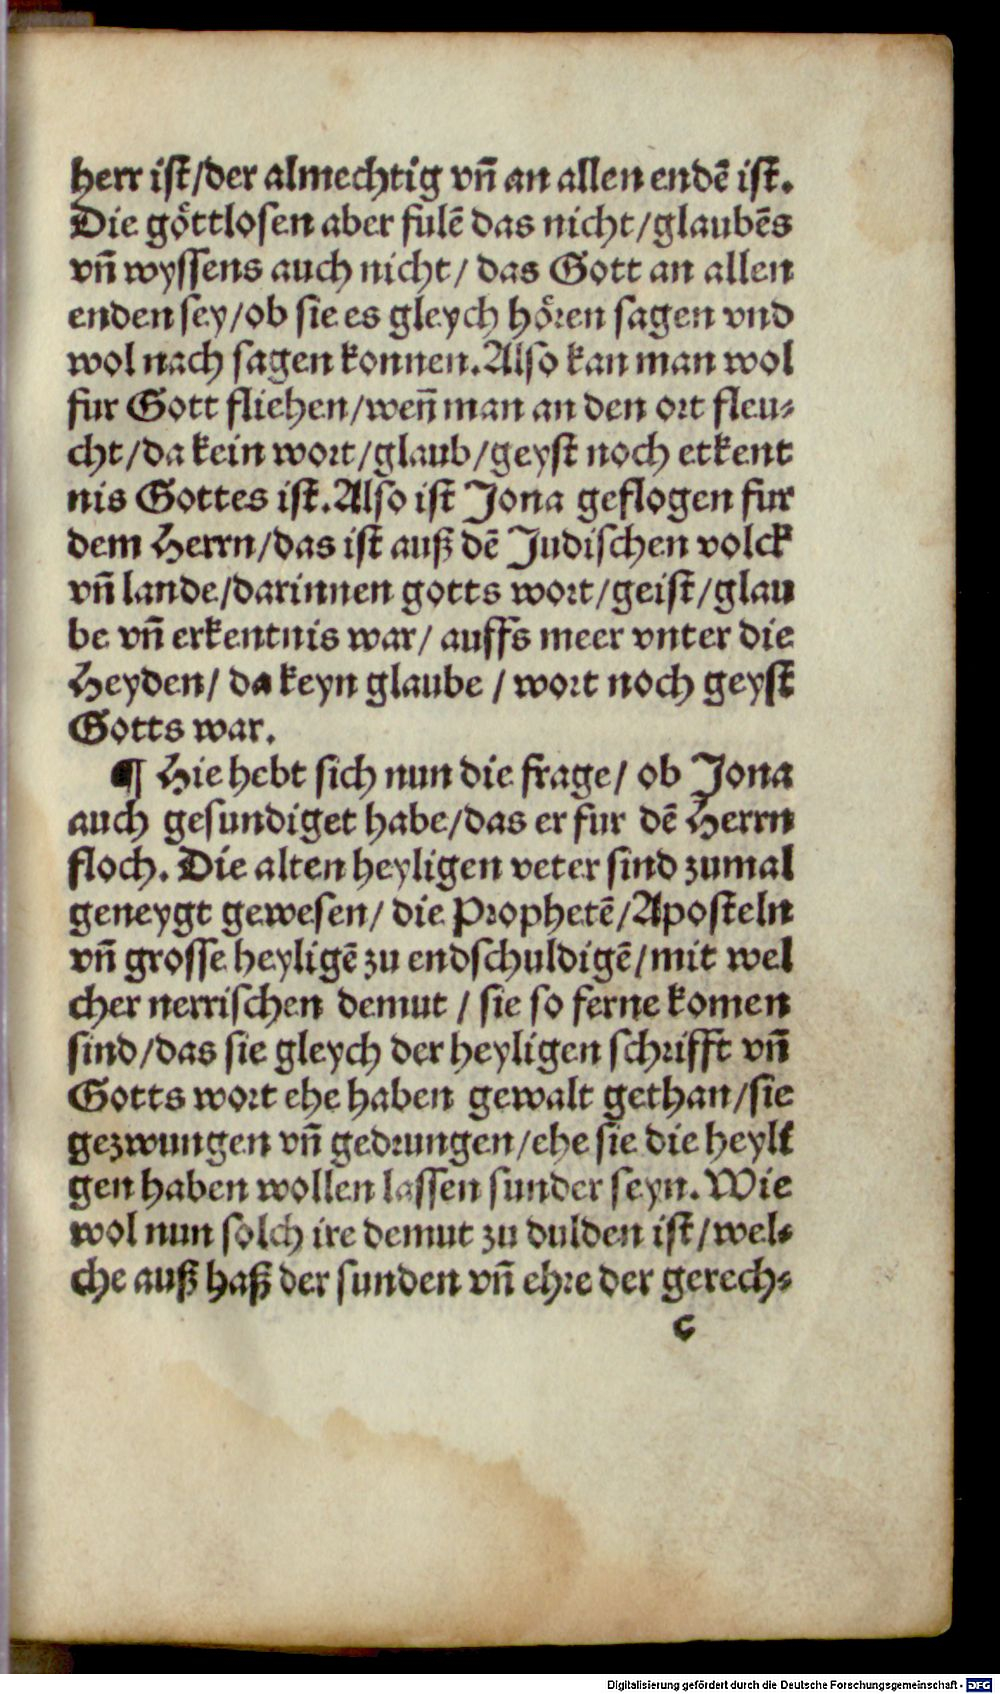 herr ist/der almechtig vn̄ an allen endē ist.
Die göttlosen aber fulē das nicht/glaubēs
vn̄ wyssens auch nicht/ das Gott an allen
enden sey/ob sie es gleych hören sagen vnd
wol nach sagen konnen. Also kan man wol
fur Gott fliehen/wen̄ man an den ort fleu-
cht/da kein wort/glaub/geyst noch etkent
nis Gottes ist. Also ist Jona geflogen fur
dem Herrn/das ist auß dē Judischen volck
vn̄ lande/darinnen gotts wort/geist/glau
be vn̄ erkentnis war/ auffs meer vnter die
Heyden/ da keyn glaube / wort noch geyst
Gotts war.
¶ Hie hebt sich nun die frage/ ob Jona
auch gesundiget habe/das er fur dē Herrn
floch. Die alten heyligen veter sind zumal
geneygt gewesen/ die Prophetē/Aposteln
vn̄ grosse heyligē zu endschuldigē/mit wel
cher nerrischen demut / sie so ferne komen
sind/das sie gleych der heyligen schrifft vn̄
Gotts wort ehe haben gewalt gethan/sie
gezwungen vn̄ gedrungen/ehe sie die heyli
gen haben wollen lassen sunder seyn. Wie
wol nun solch ire demut zu dulden ist/wel-
che auß haß der sunden vn̄ ehre der gerech-
c
Digitalisierung gefördert durch die Deutsche Forschungsgemeinschaft - DFG